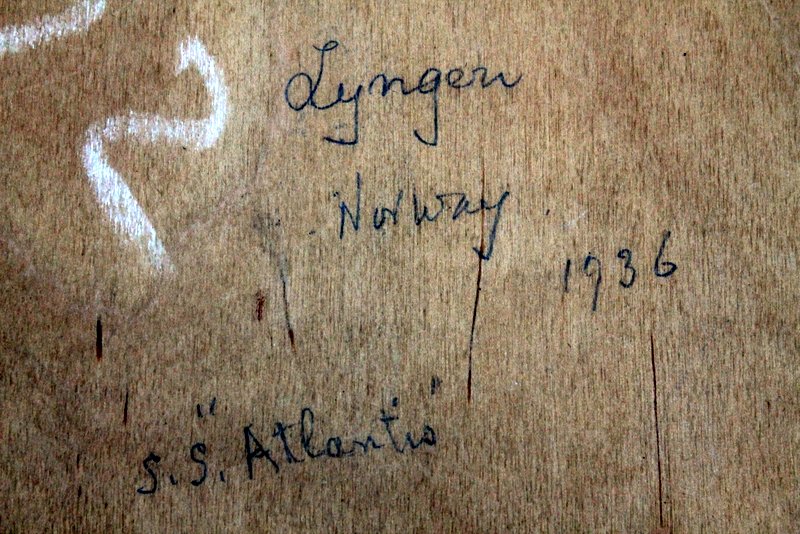 Lyngen
Norway
1936
S.S. "Atlantis"